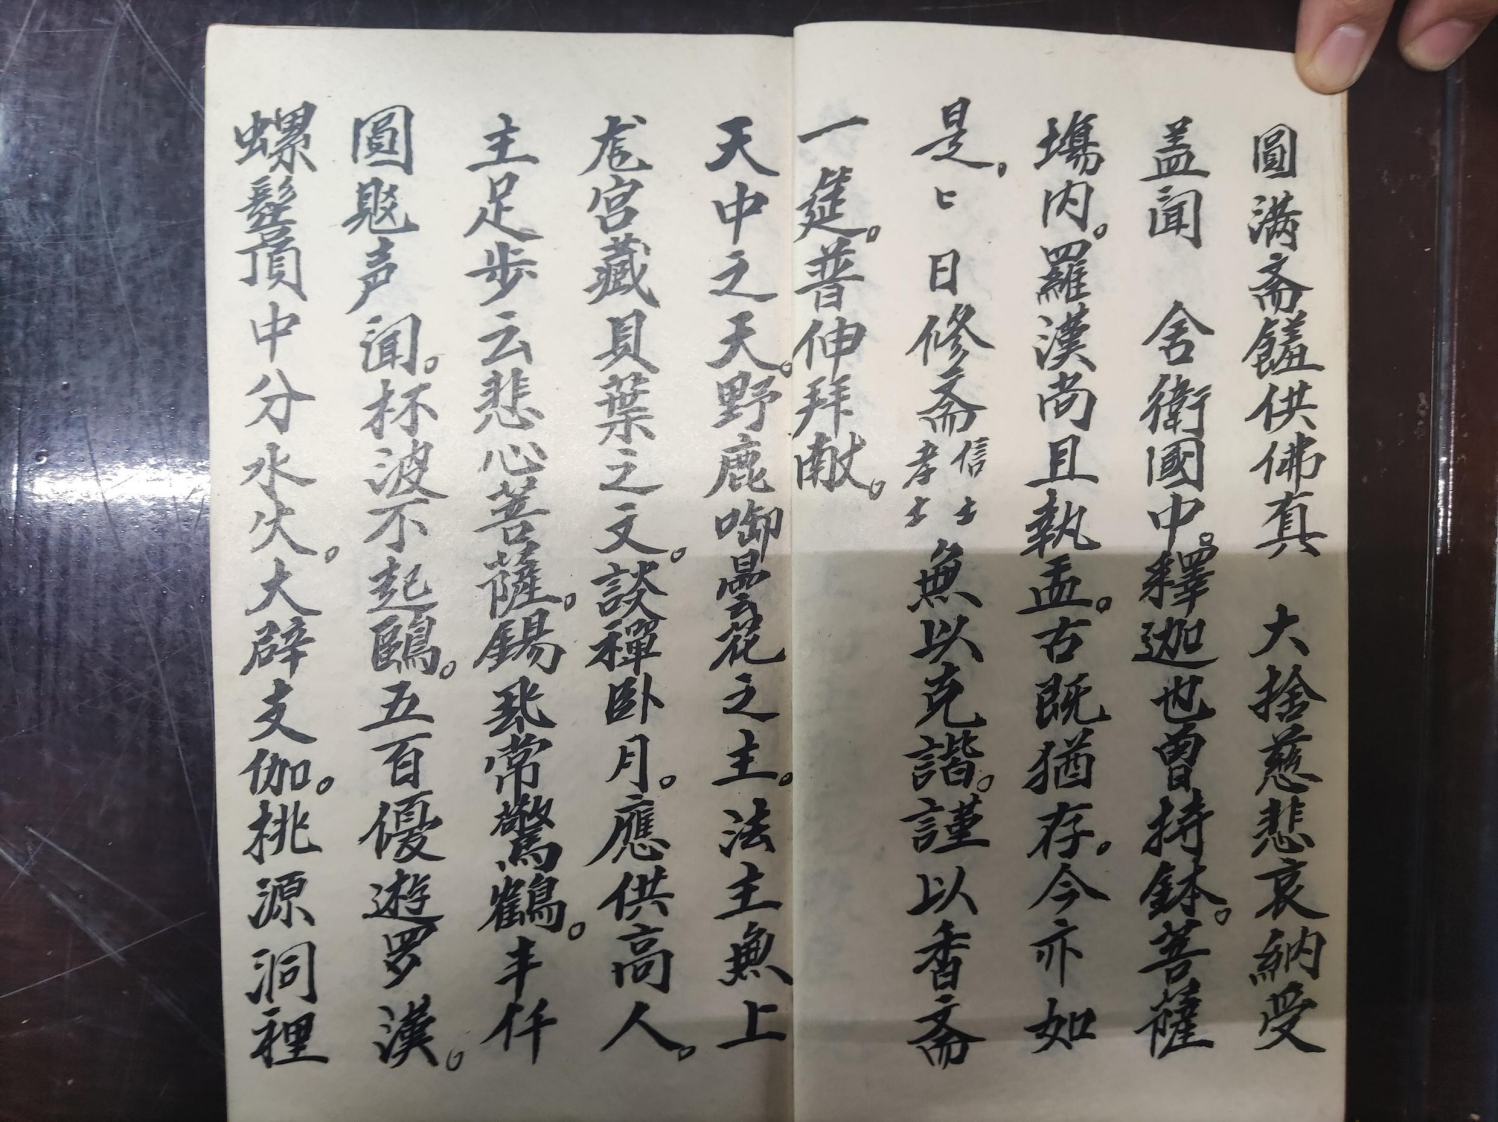 圓满斋饈供佛真　大捨慈悲哀納受
盖闻　舍衛國中。釋迦也曾持鉢。菩薩
塲内。羅漢尚且執盂。古既猶存。今亦如
是。ヒ日修斋信士孝士無以克諧。謹以香斋
一筵。普伸拜献。
天中之天。野鹿啣曇花之主。法主無上
宮藏貝葉之文。談禪卧月。應供高人。
主足步云悲心菩薩。錫飛常驚鶴。丰仟
圓聪声闻。杯波不起鷗。五百優遊罗漢。
螺髻頂中分水火。大辟支伽。桃源洞裡